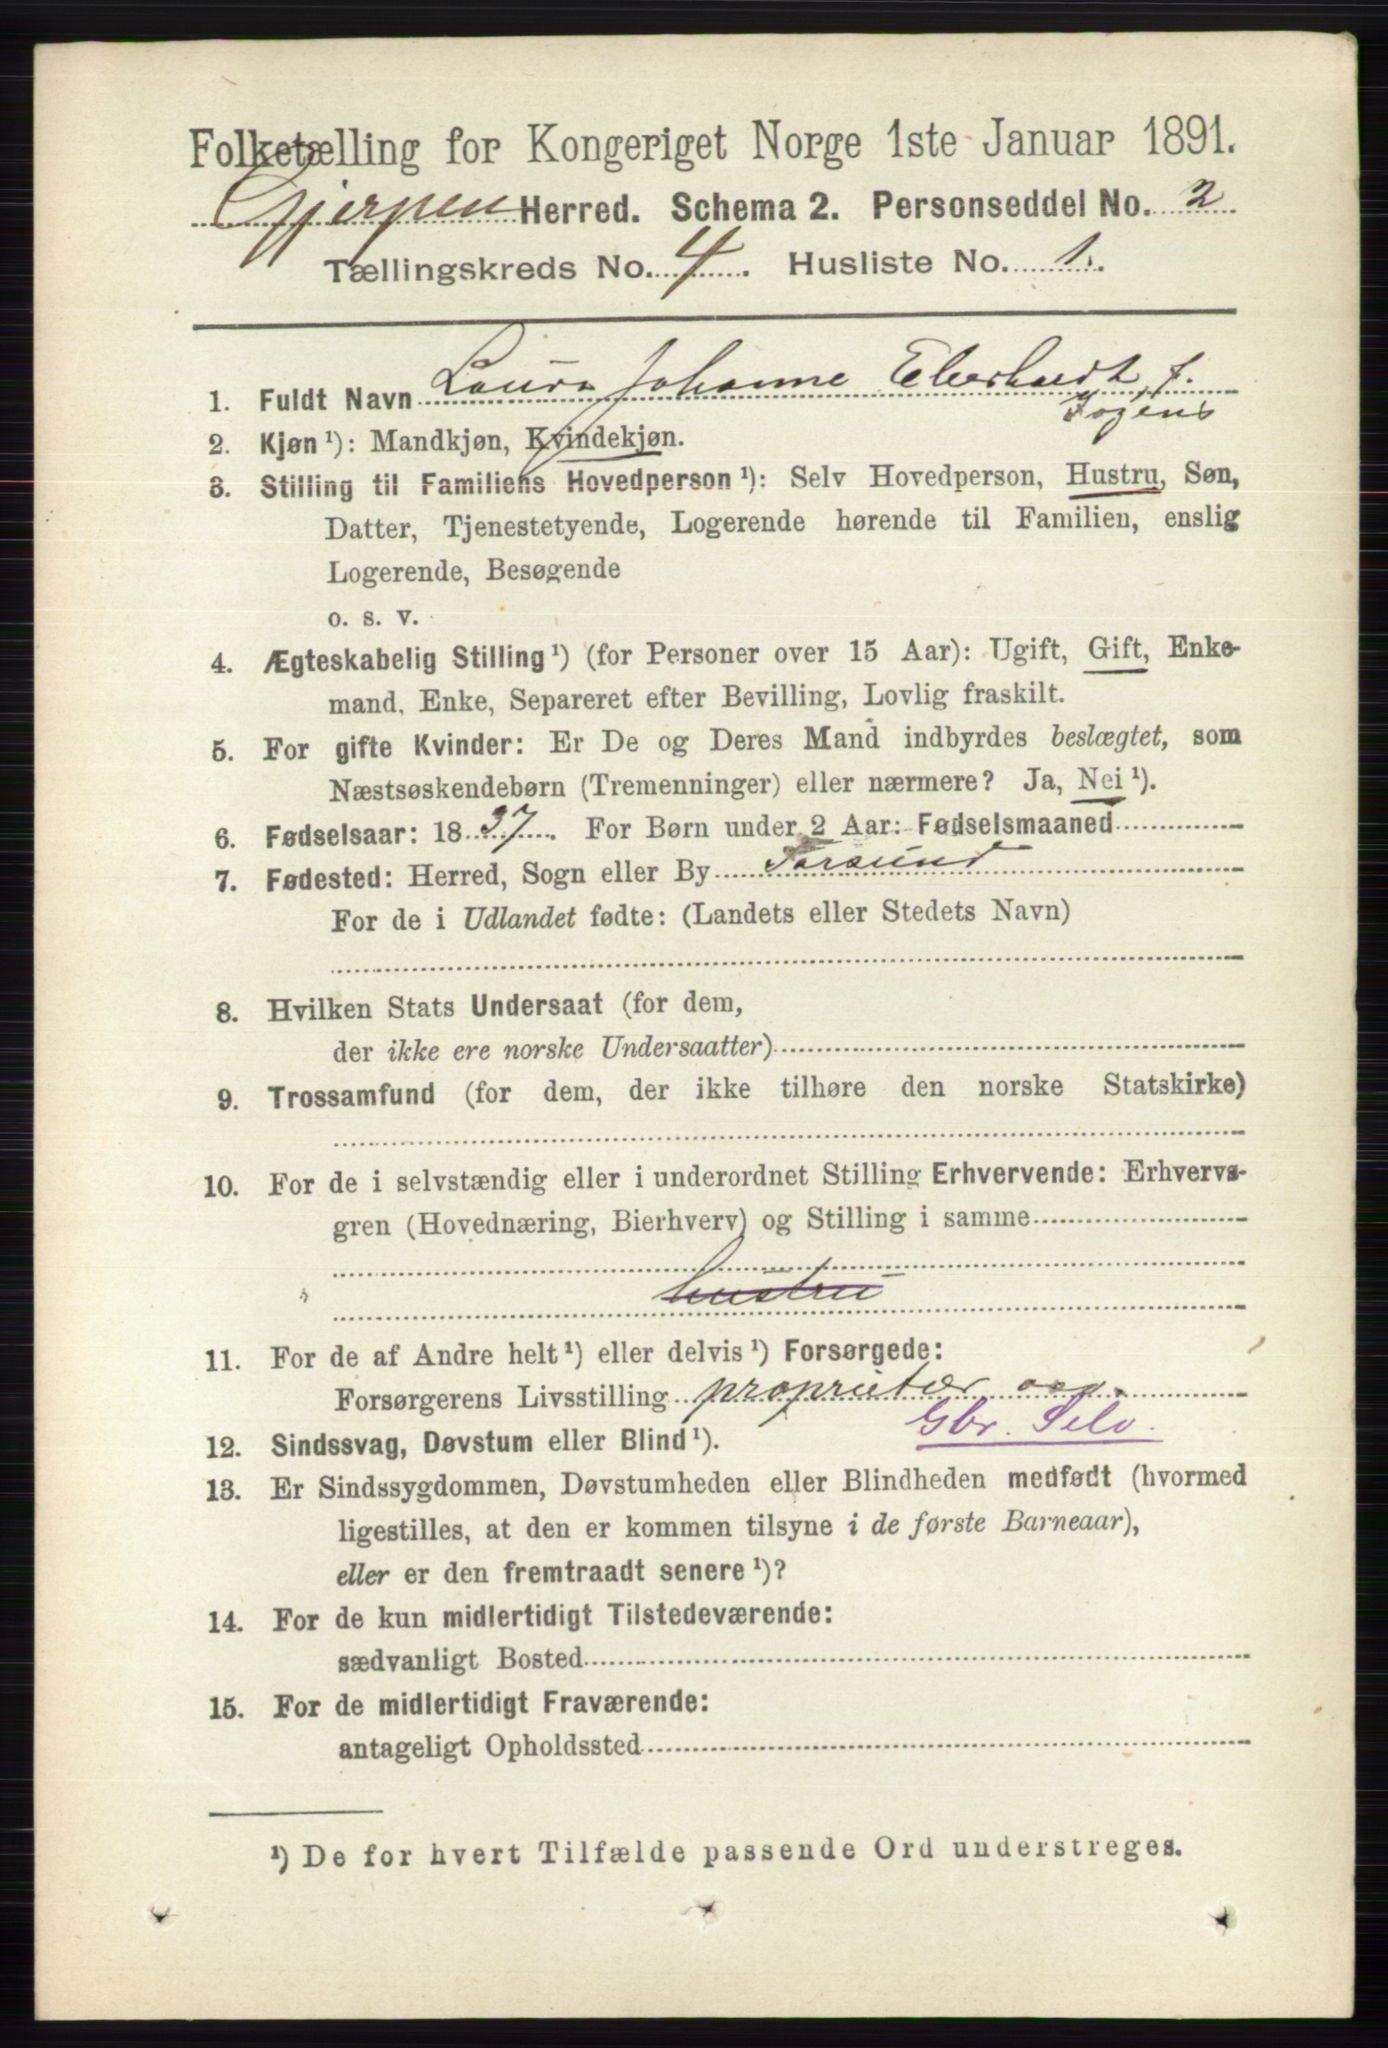 Folketælling for Kongeriget Norge 1ste Januar 1891.
Gjerpen Herred. Schema 2. Personseddel No. 2
Tællingskreds No. 4. Husliste No. 1.
1. Fuldt Navn Laura Johanne Eberhardt f.
2. Kjøn ¹): Mandkjøn, Kvindekjøn.
3. Stilling til Familiens Hovedperson ¹): Selv Hovedperson, Hustru, Søn,
Datter, Tjenestetyende, Logerende hørende til Familien, enslig
Logerende, Besøgende
o. s. v.
4. Ægteskabelig Stilling ¹) (for Personer over 15 Aar): Ugift, Gift, Enke-
mand, Enke, Separeret efter Bevilling, Lovlig fraskilt.
5. For gifte Kvinder: Er De og Deres Mand indbyrdes beslægtet, som
Næstsøskendebørn (Tremenninger) eller nærmere? Ja, Nei ¹).
6. Fødselsaar: 1837. For Børn under 2 Aar: Fødselsmaaned
7. Fødested: Herred, Sogn eller By Farsund
For de i Udlandet fødte: (Landets eller Stedets Navn)
8. Hvilken Stats Undersaat (for dem,
der ikke ere norske Undersaatter)
9. Trossamfund (for dem, der ikke tilhøre den norske Statskirke)
10. For de i selvstændig eller i underordnet Stilling Erhvervende: Erhvervs-
gren (Hovednæring, Bierhverv) og Stilling i samme
hustru
11. For de af Andre helt ¹) eller delvis ¹) Forsørgede:
Forsørgerens Livsstilling proprietær
Gbr. Selv.
12. Sindssvag, Døvstum eller Blind ¹).
13. Er Sindssygdommen, Døvstumheden eller Blindheden medfødt (hvormed
ligestilles, at den er kommen tilsyne i de første Barneaar),
eller er den fremtraadt senere ¹)?
14. For de kun midlertidigt Tilstedeværende:
sædvanligt Bosted
15. For de midlertidigt Fraværende:
antageligt Opholdssted
¹) De for hvert Tilfælde passende Ord understreges.